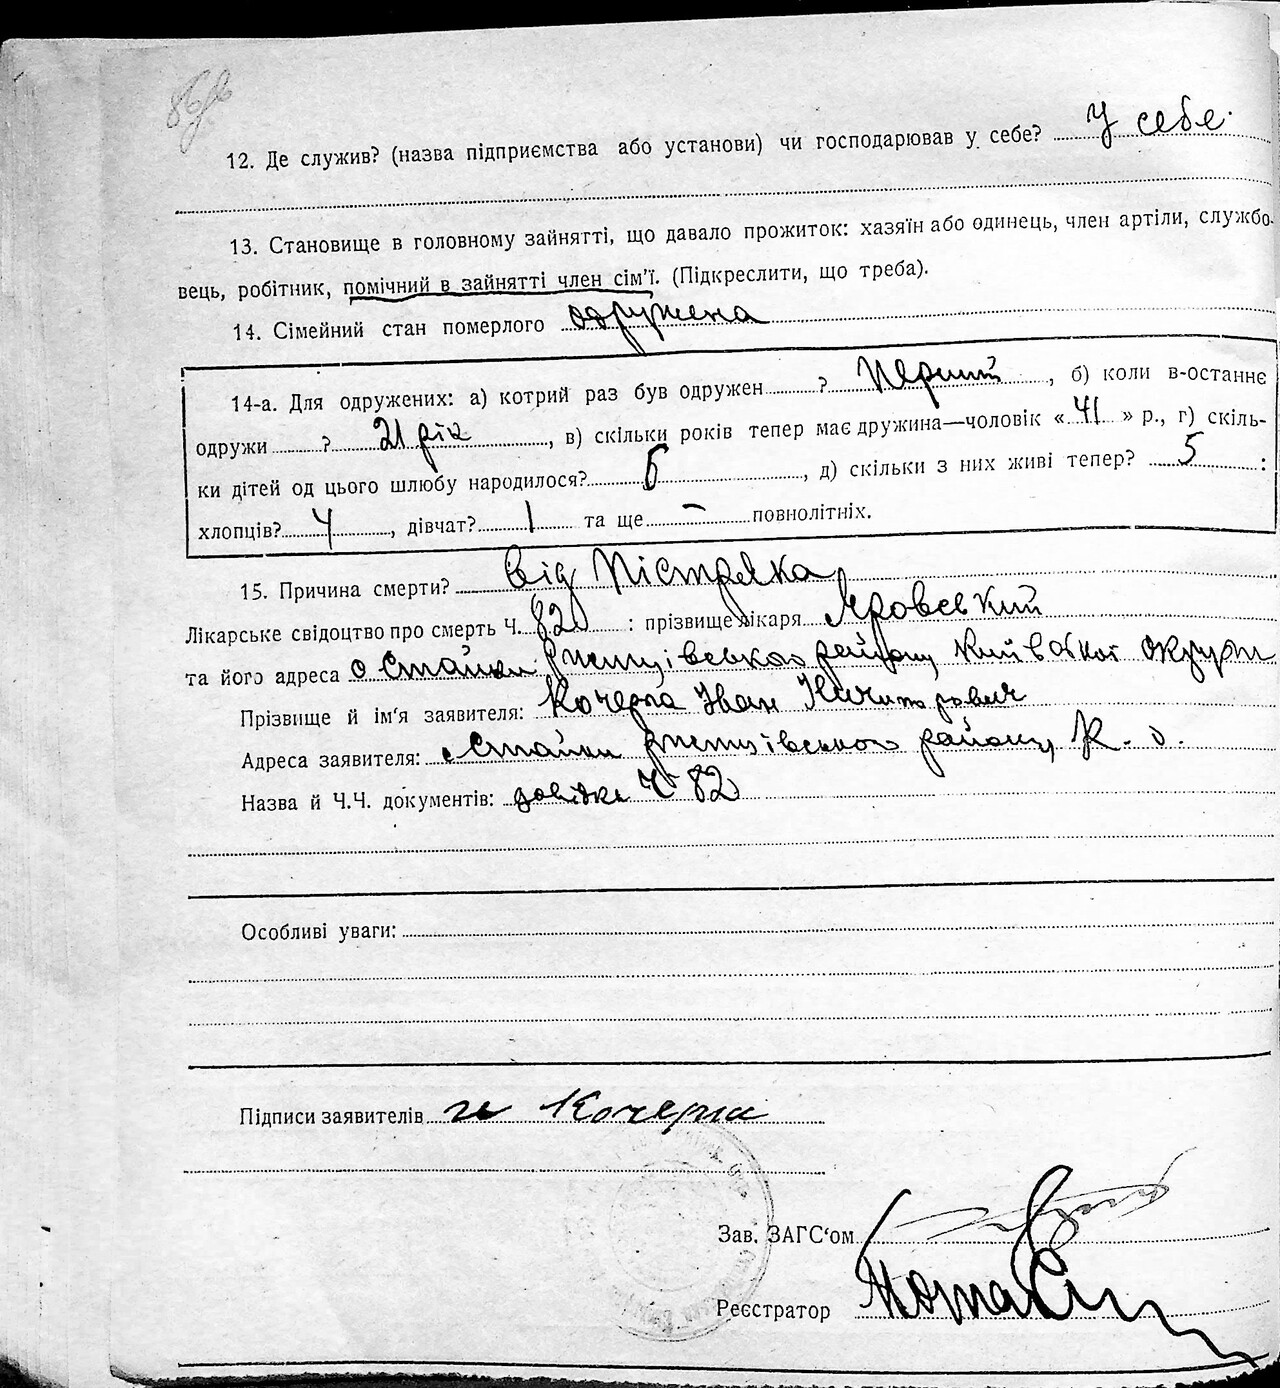 12. Де служив? (назва підприємства або установи) чи господарював у себе? У себе.
13. Становище в головному зайнятті, що давало прожиток: хазяїн або одинець, член артіли, службо-
вець, робітник, помічний в зайнятті член сім'ї. (Підкреслити, що треба).
14. Сімейний стан померлого одружена
14-а. Для одружених: а) котрий раз був одружен ? Перший , б) коли в-останнє
одружи ? 21 рік , в) скільки років тепер має дружина—чоловік « 41 » р., г) скіль-
ки дітей од цього шлюбу народилося? 6 , д) скільки з них живі тепер? 5 :
хлопців? 4 , дівчат? 1 та ще – повнолітніх.
15. Причина смерти? від Пістряка
Лікарське свідоцтво про смерть Ч. 82 : прізвище лікаря Яровський
та його адреса с Стайки Ржищівського району Київської Округи
Прізвище й ім'я заявителя: Кочерга Іван Никифорович
Адреса заявителя: с Стайки Ржищівського району К. о.
Назва й Ч.Ч. документів: довідка Ч 82
Особливі уваги:
Підписи заявителів Кочерга
Зав. ЗАГС'ом
Реєстратор